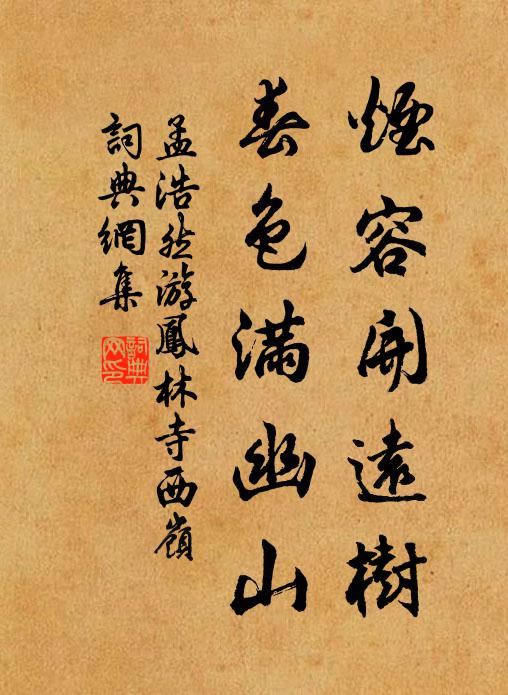 煙容開遠樹
春色滿幽山
孟浩然游鳳林寺西嶺
詞典網集
詞典網印